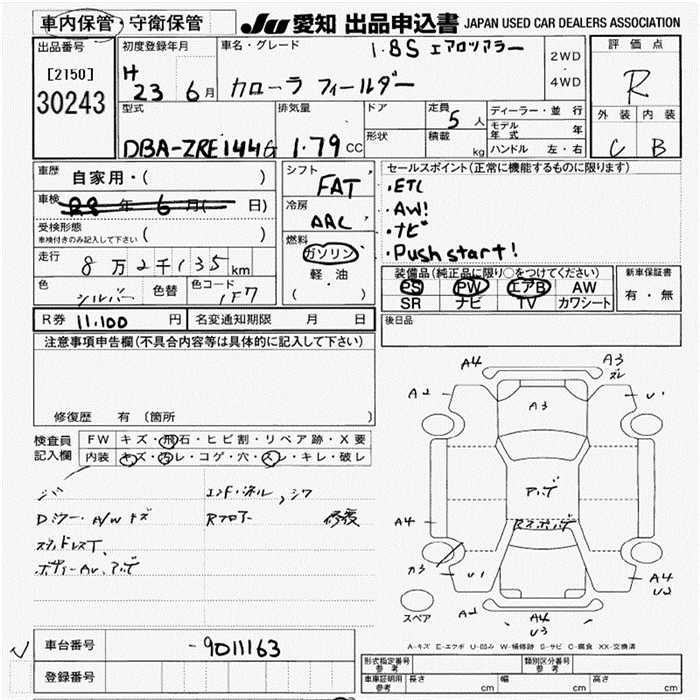 車内保管・守衛保管
JU 愛知 出品申込書 JAPAN USED CAR DEALERS ASSOCIATION
出品番号
[2150]
30243
初度登録年月
H 23 6月
車名・グレード
1.8S エアロツアラー
カローラ フィールダー
2WD
・
4WD
評価点
R
外装 内装
C B
型式
DBA-ZRE144G
排気量
1.79 CC
ドア
形状
定員
5 人
積載
kg
ディーラー・並行
モデル年式 年
ハンドル 左・右
車歴
自家用・( )
車検
年 6月( 日)
受検形態
車検付きのみ記入して下さい ( )
走行
8万2千135km
色
シルバー
色替
色コード
1F7
シフト
FAT
冷房
AAC
燃料
ガソリン
軽・油
( )
セールスポイント(正常に機能するものに限ります)
・ETC
・AW!
・ナビ
・Push start!
装備品(純正品に限り○をつけてください)
PS PW エアB AW
SR ナビ TV カワシート
新車保証書
有・無
R券 11,100 円
名変通知期限 月 日
後日品
注意事項申告欄(不具合内容等は具体的に記入して下さい)
修復歴 有 〔箇所 〕
検査員
記入欄
FW キズ・飛石・ヒビ割・リペア跡・X要
内装 キズ・汚レ・コゲ・穴・スレ・キレ・破レ
Dミラー・A/Wキズ
Rフロアー 修復
A4
A3
ズレ
A2
U1
A3
A4
A3
U1
A4
U2
A2
A4
U3
スペア
A-キズ E-エクボ U-凹み W-補修跡 S-サビ C-腐食 XX-交換済
車台番号
-9011163
登録番号
形式指定番号
参考
類別区分番号
参考
車庫証明用
参考
長さ cm 幅 cm 高さ cm